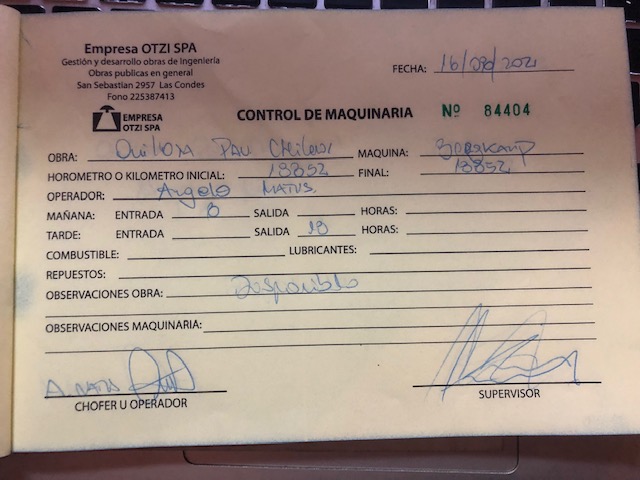 Empresa OTZI SPA
Gestión y desarrollo obras de Ingeniería
Obras publicas en general
San Sebastian 2957 Las Condes
Fono 225387413
FECHA: 16/08/2021
EMPRESA
OTZI SPA
CONTROL DE MAQUINARIA Nº 84404
OBRA: MAQUINA:
HOROMETRO O KILOMETRO INICIAL: 18852 FINAL: 18852
OPERADOR: Angelo
MAÑANA: ENTRADA 8 SALIDA HORAS:
TARDE: ENTRADA SALIDA 18 HORAS:
COMBUSTIBLE: LUBRICANTES:
REPUESTOS:
OBSERVACIONES OBRA: Disponible
OBSERVACIONES MAQUINARIA:
CHOFER U OPERADOR SUPERVISOR